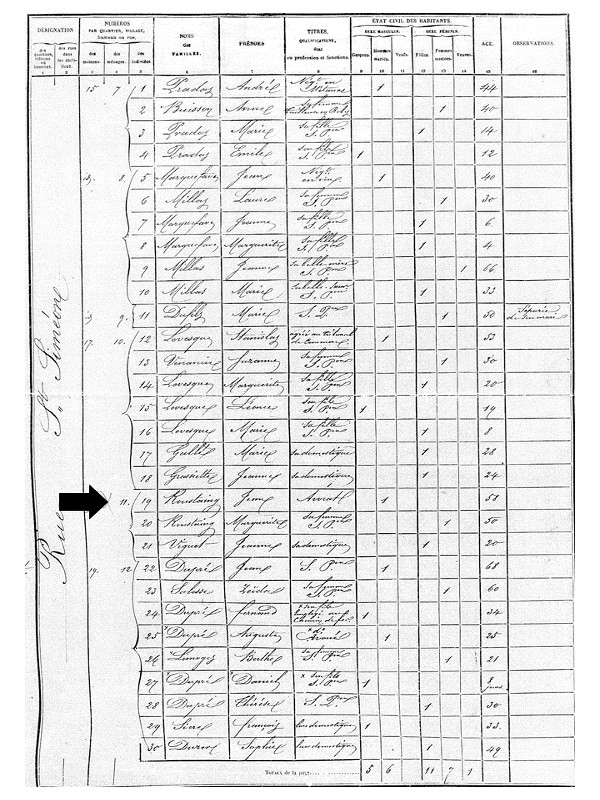 DÉSIGNATION
NUMÉROS
PAR QUARTIER, VILLAGE, hameau ou rue,
NOMS DE FAMILLES.
PRÉNOMS
TITRES, QUALIFICATIONS, état ou profession et fonctions.
ÉTAT CIVIL DES HABITANTS.
SEXE MASCULIN.
SEXE FÉMININ.
AGE.
OBSERVATIONS.
des quartiers, villages ou hameaux.
des rues
des maisons.
des ménages.
des individus.
Garçons.
Hommes mariés.
Veufs.
Filles.
Femmes mariées.
Veuves.
1 2 3 4 5 6 7 8 9 10 11 12 13 14 15 16
Rue St Siméon
15 7 1 Prados André Négt en 1 44
2 Buisson Anne 1 40
3 Prados Marie sa fille S. Pon 1 14
4 Prados Emile son fils S. Pon 1 12
8 5 Marquefave Jean Négt en vins 1 40
6 Millas Laure sa femme S. Pon 1 30
7 Marquefave Jeanne sa fille S. Pon 1 6
8 Marquefave Marguerite sa fille S. Pon 1 4
9 Millas Jeanne sa belle mère S. Pon 1 66
10 Millas Marie sa belle sœur S. Pon 1 33
9 11 Marie S. Pon 1 50 Séparée de son mari
17 10 12 Levesque Stanislas agréé au tribunal de Commerce 1 53
13 Suzanne sa femme S. Pon 1 30
14 Levesque Marguerite sa fille S. Pon 1 20
15 Levesque Léonce son fils S. Pon 1 19
16 Levesque Marie sa fille S. Pon 1 8
17 Marie sa domestique 1 28
18 Jeanne sa domestique 1 24
11 19 Roustaing Jean Avocat 1 58
20 Roustaing Marguerite sa femme S. Pon 1 50
21 Viguet Jeanne sa domestique 1 20
19 12 22 Dupré Jean S. Pon 1 68
23 Zéïda sa femme S. Pon 1 60
24 Dupré fernand son fils Employé aux Chemins de fer 1 34
25 Dupré Auguste do Avoué 1 25
26 Limoges Berthe sa femme S. Pon 1 21
27 Dupré Daniel son fils S. Pon 1 8 jours
28 Dupré Thérèse S. Pon 1 30
29 françois leur domestique 1 33
30 Sophie leur domestique 1 49
Totaux de la page 5 6 11 7 1